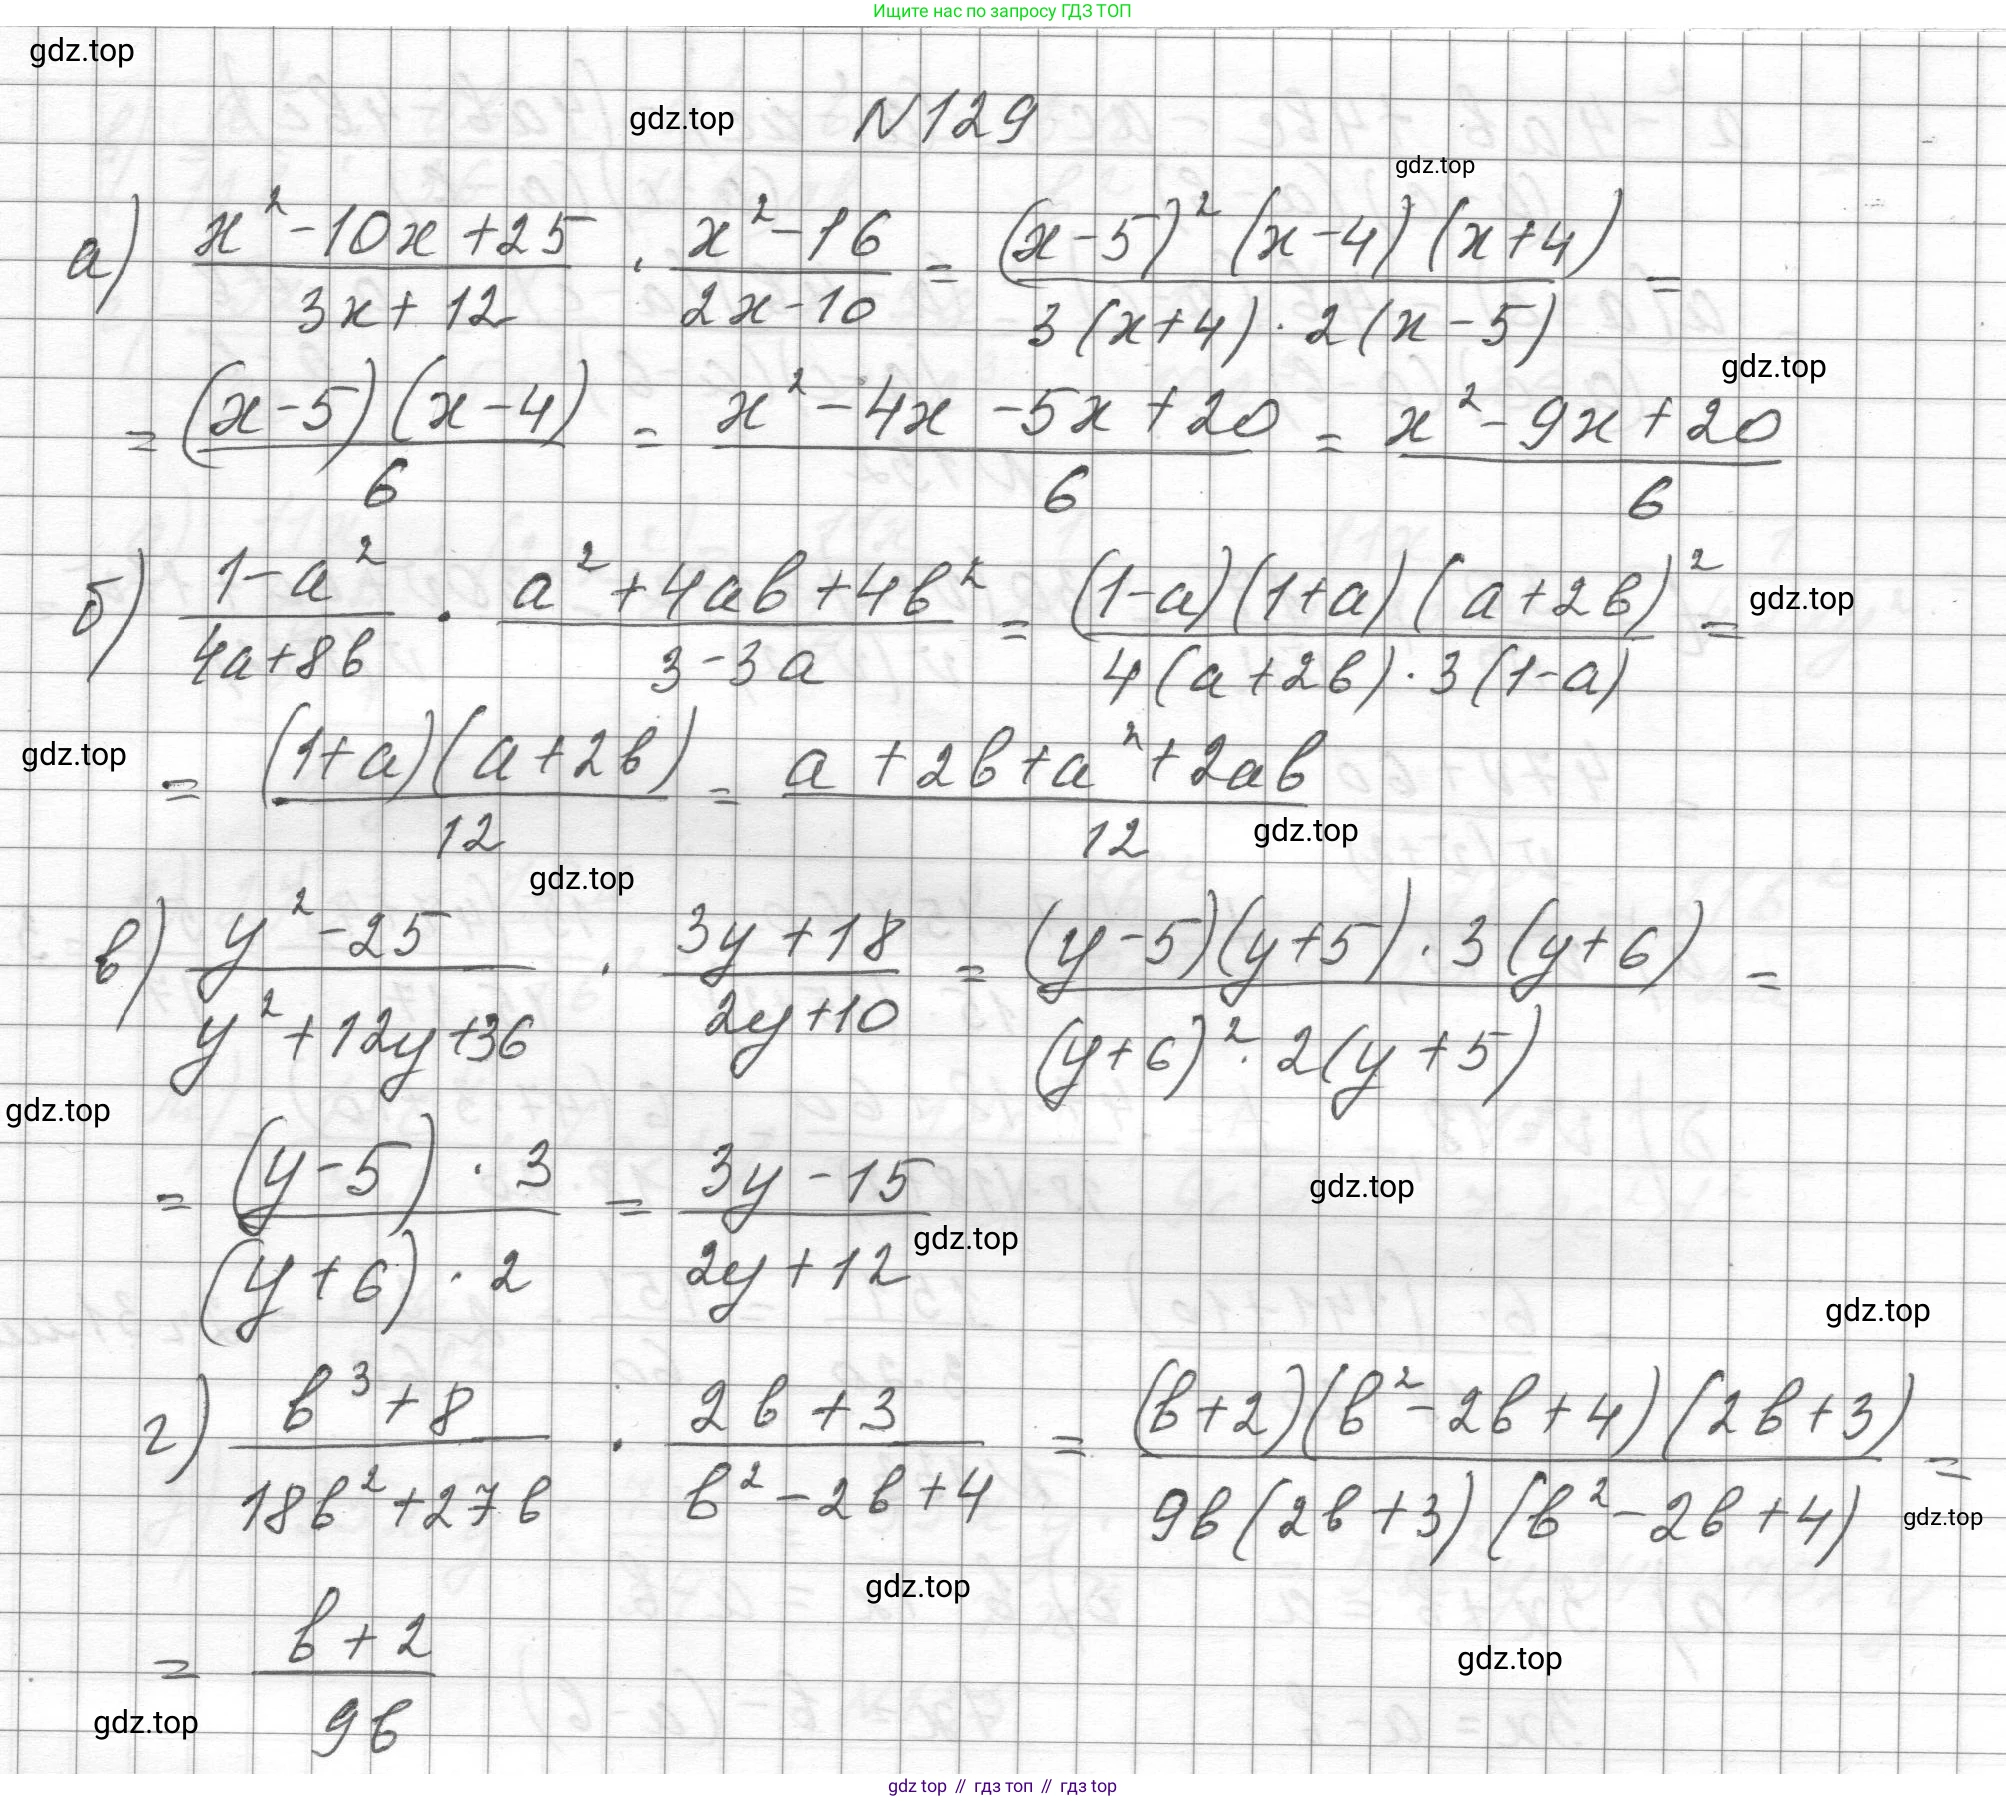 Ищите нас по запросу ГДЗ ТОП
gdz.top
gdz.top N129
gdz.top
а) (x² - 10x + 25)/(3x + 12) · (x² - 16)/(2x - 10) = ((x - 5)² (x - 4)(x + 4))/(3(x + 4) · 2(x - 5)) =
gdz.top
= ((x - 5)(x - 4))/6 = (x² - 4x - 5x + 20)/6 = (x² - 9x + 20)/6
б) (1 - a²)/(4a + 8b) · (a² + 4ab + 4b²)/(3 - 3a) = ((1 - a)(1 + a)(a + 2b)²)/(4(a + 2b) · 3(1 - a)) = gdz.top
gdz.top = ((1 + a)(a + 2b))/12 = (a + 2b + a² + 2ab)/12
gdz.top
gdz.top
в) (y² - 25)/(y² + 12y + 36) · (3y + 18)/(2y + 10) = ((y - 5)(y + 5) · 3(y + 6))/((y + 6)² · 2(y + 5)) =
gdz.top
= ((y - 5) · 3)/((y + 6) · 2) = (3y - 15)/(2y + 12)
gdz.top
gdz.top
gdz.top
г) (b³ + 8)/(18b² + 27b) · (2b + 3)/(b² - 2b + 4) = ((b + 2)(b² - 2b + 4)(2b + 3))/(9b(2b + 3)(b² - 2b + 4)) =
gdz.top
gdz.top
= (b + 2)/(9b)
gdz.top
gdz.top
gdz top // гдз топ // гдз top